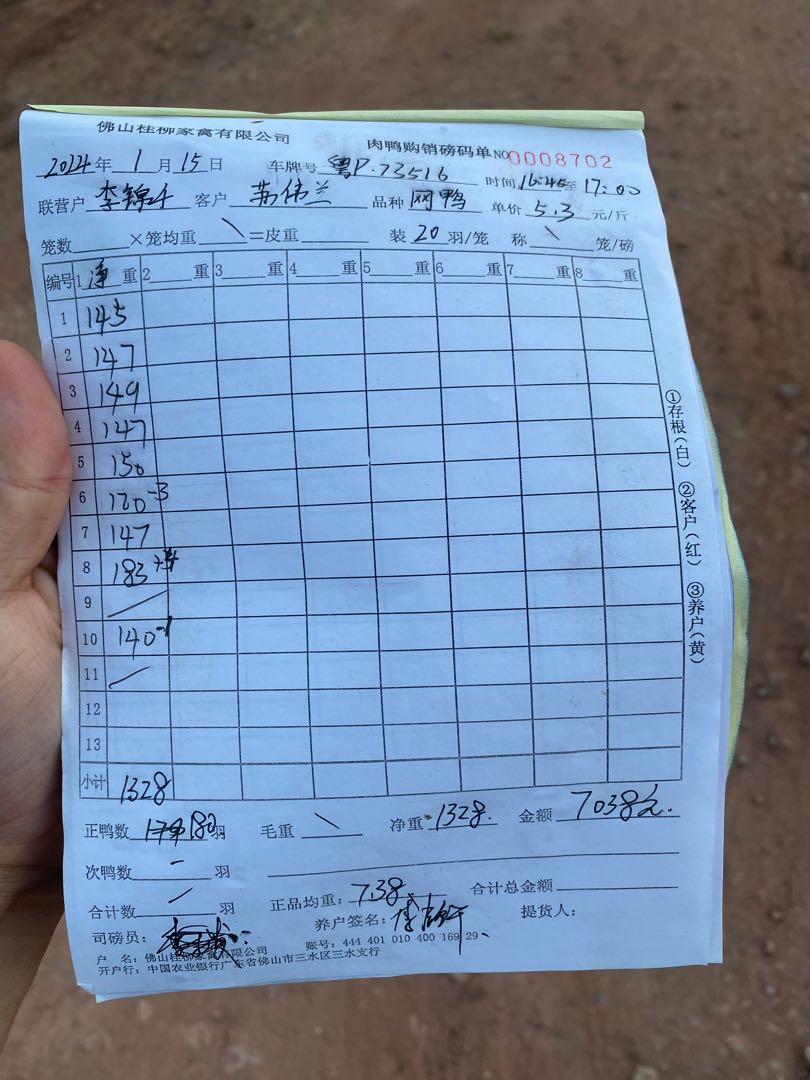 佛山桂柳家禽有限公司
肉鸭购销磅码单 NO 0008702
2024年 1月 15日 车牌号 粤P·73516 时间 16:45至 17:00
联营户 李锦 客户 苏伟兰 品种 网鸭 单价 5.3 元/斤
笼数 ×笼均重 \ =皮重 装 20 羽/笼 称 \ 笼/磅
编号 1 净 重 2 重 3 重 4 重 5 重 6 重 7 重 8 重
1 145
2 147
3 149
4 147
5 150
6 120 -3
7 147
8 183
9 /
10 140 -1
11 /
12
13
小计 1328
正鸭数 180 羽 毛重 \ 净重 1328. 金额 7038元.
次鸭数 - 羽
合计数 / 羽 正品均重: 7.38 合计总金额
司磅员: 养户签名: 提货人:
户 名: 佛山桂柳家禽有限公司 账号: 444 401 010 400 169 29
开户行: 中国农业银行广东省佛山市三水区三水支行
①存根(白) ②客户(红) ③养户(黄)